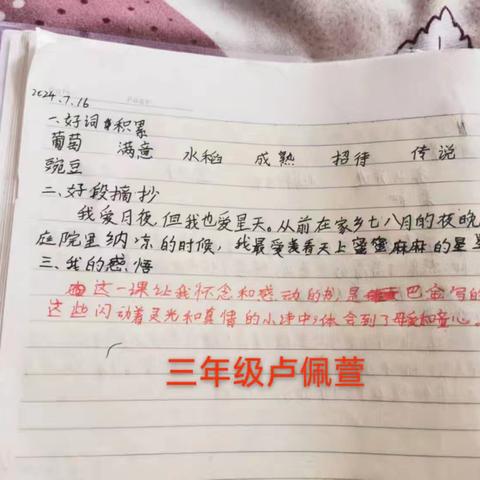 2024.7.16
一、好词积累
葡萄 满意 水稻 成熟 招待 传说
豌豆
二、好段摘抄
我爱月夜,但我也爱星天。从前在家乡七八月的夜晚
庭院里纳凉的时候,我最爱看天上密密麻麻的星
三、我的感悟
这一课让我怀念和感动的 是 巴金写的
这些闪动着灵光和真情的小诗中,体会到了母爱和童心。
三年级卢佩萱